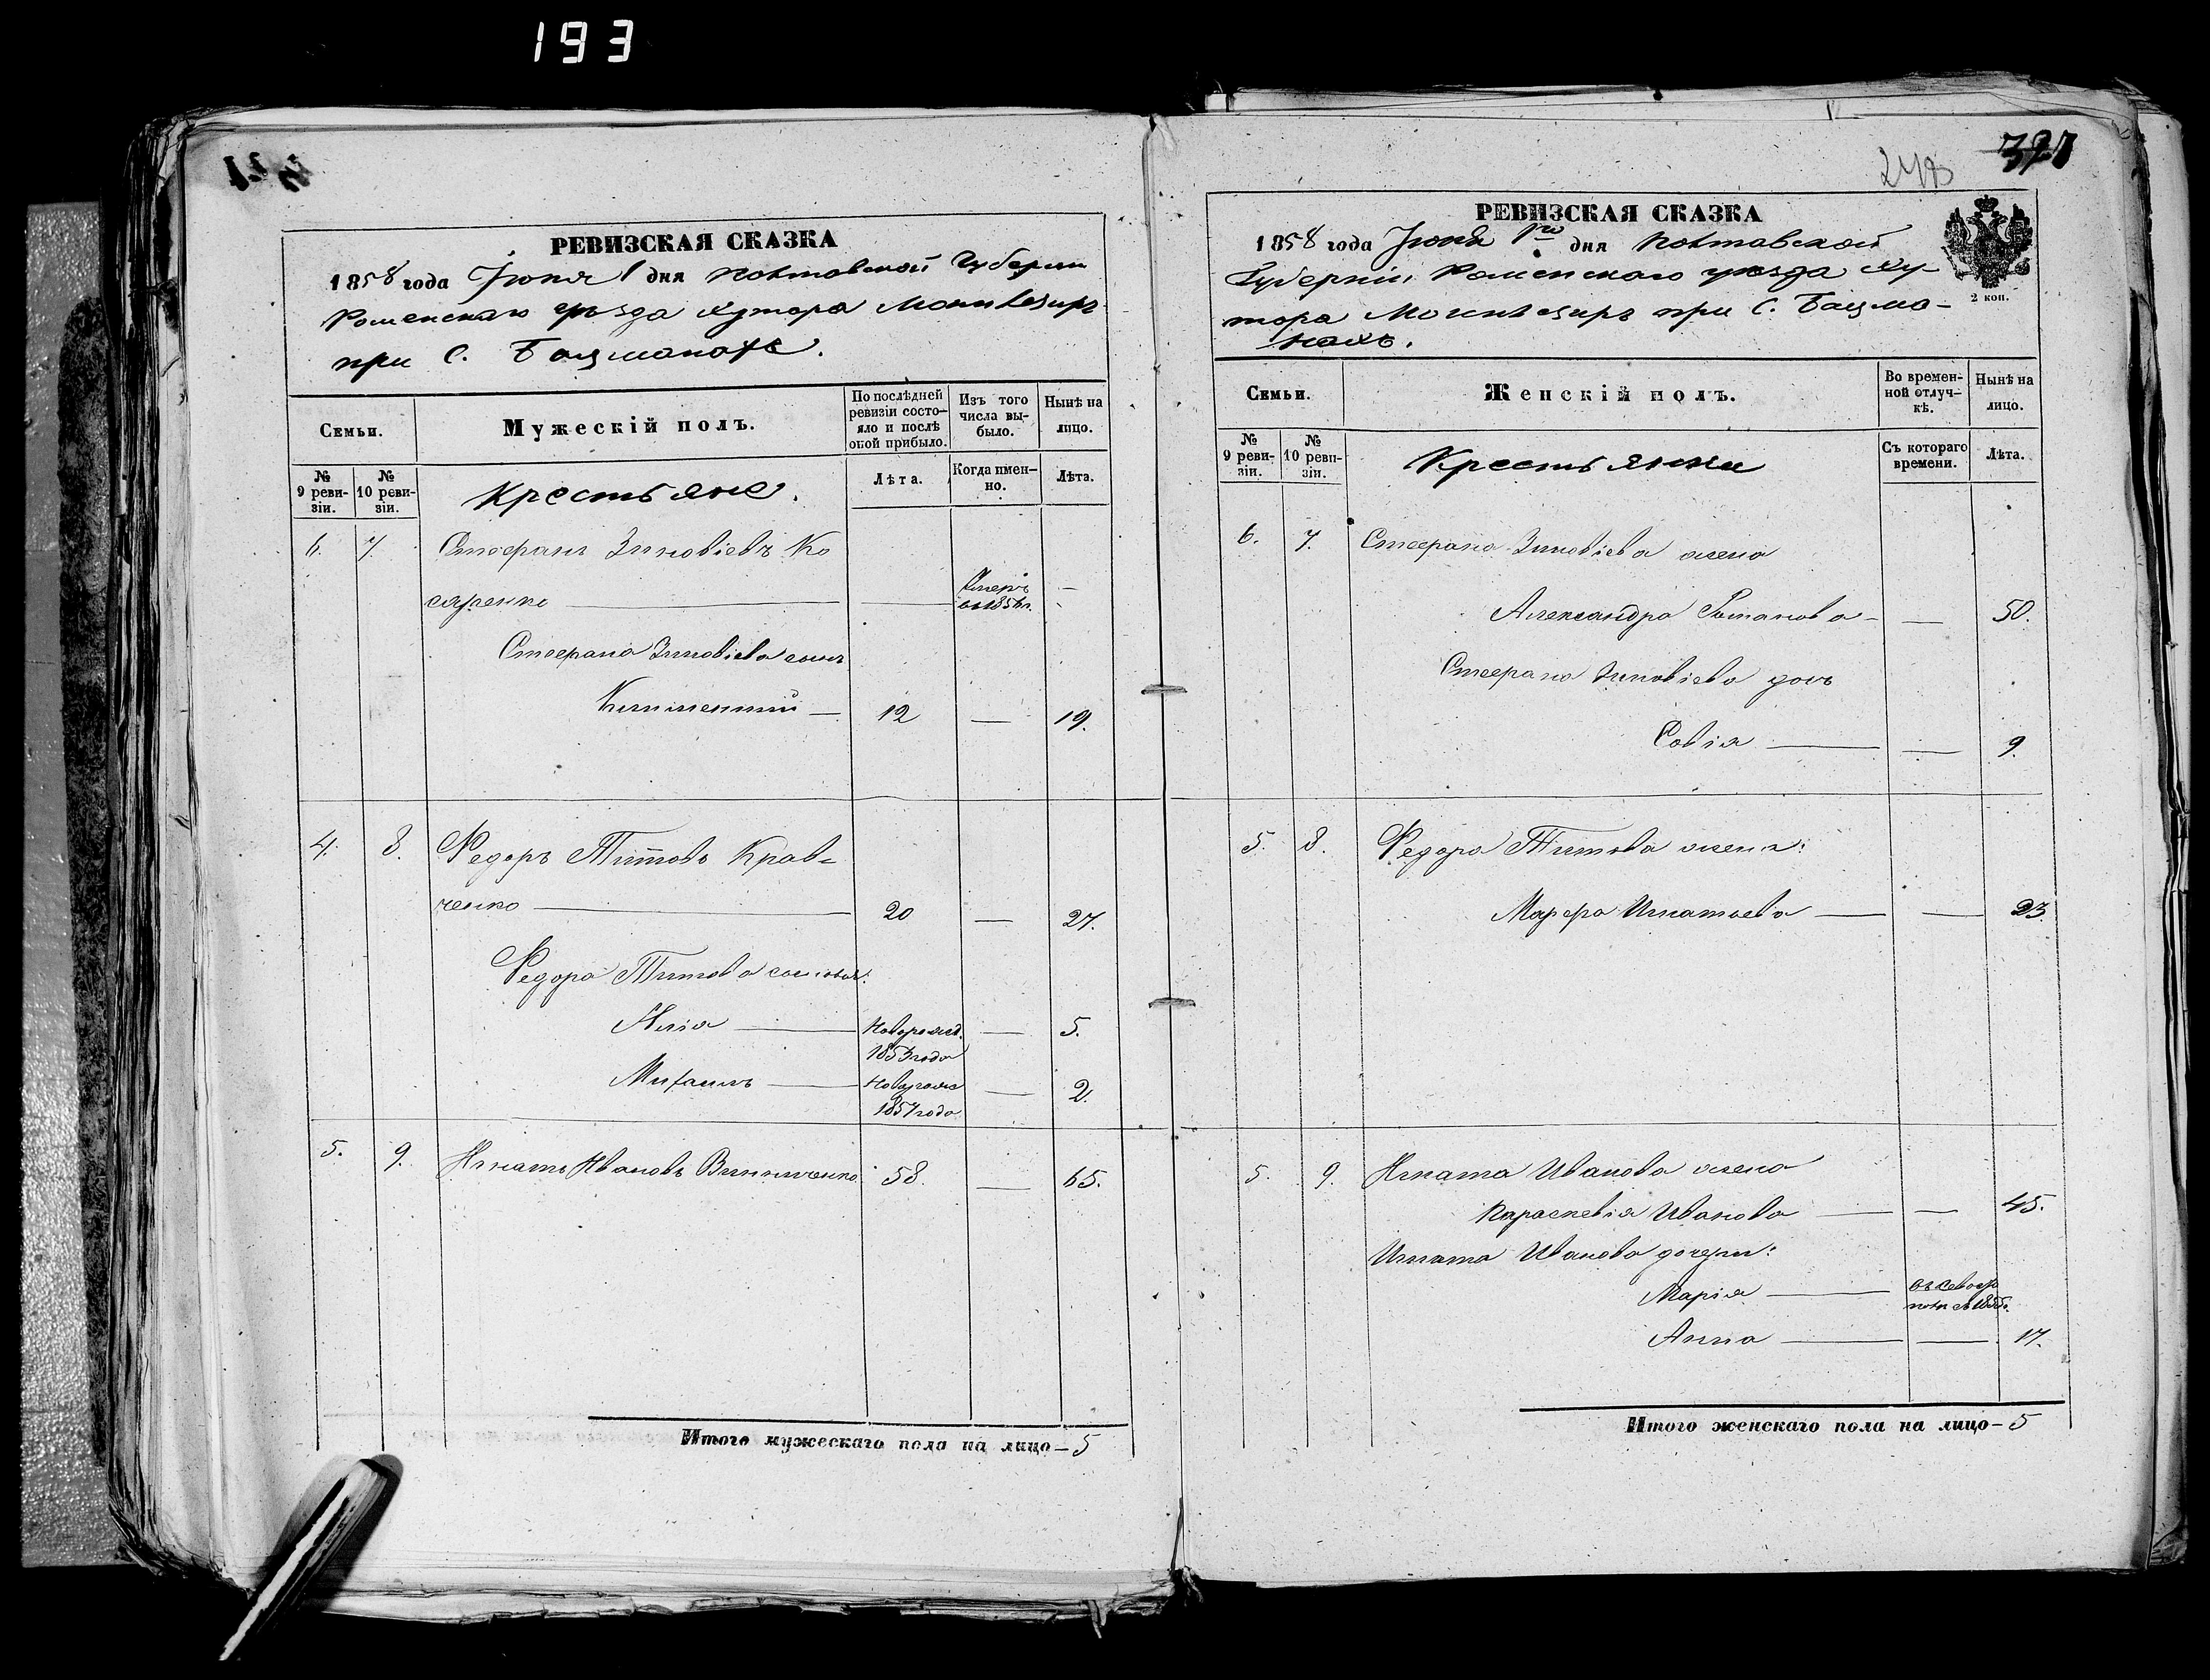 193
РЕВИЗСКАЯ СКАЗКА
1858 года Іюня 1 дня Полтавской Губерніи
Роменскаго уѣзда хутора
при С. Бацманахъ.
Семьи.
Мужескій полъ.
По послѣдней ревизіи состояло и послѣ оной прибыло.
Изъ того числа выбыло.
Нынѣ на лицо.
№ 9 ревизіи.
№ 10 ревизіи.
Крестьяне.
Лѣта.
Когда именно.
Лѣта.
6. 7. Стефанъ Зиновіевъ Ко
саренко — — Умеръ —
въ 1856 г.
Стефана Зиновіева сынъ
Климентій — 12 — 19.
4. 8. Федоръ Титовъ Крав-
ченко — 20 — 27.
Федора Титова сыновья:
Илія — Новорожд. — 5.
1853 года
Михаилъ — Новорожд — 2.
1857 года
5. 9. Игнатъ Ивановъ Винниченко 58. — 65.
Итого мужескаго пола на лицо — 5
321
РЕВИЗСКАЯ СКАЗКА
1858 года Іюня 1го дня Полтавской
Губерніи, Роменскаго уѣзда Ху-
тора при С. Бацма-
нахъ.
2 коп.
Семьи.
Женскій полъ.
Во временной отлучкѣ.
Нынѣ на лицо.
№ 9 ревизіи.
№ 10 ревизіи.
Крестьянки
Съ котораго времени.
Лѣта.
6. 7. Стефана Зиновіева жена
Александра Романова — — 50.
Стефана Зиновіева дочь
Софія — — 9.
5. 8. Федора Титова жена:
Марфа Игнатьева — — 23.
5. 9. Игната Иванова жена
Параскевія Иванова — — 45.
Игната Иванова дочери:
Марія — въ Севасто
Анна — — 17.
Итого женскаго пола на лицо — 5